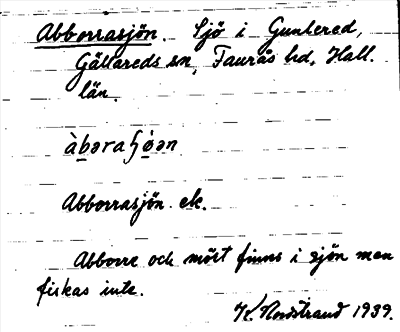 Abborrasjön. Sjö i Gunlered,
Gällareds sn, Faurås hd. Hall.
län.
àbəraʃóən
Abborrasjön ek.
Abborre och mört finns i sjön men
fiskas inte.
K. Nordstrand 1939.